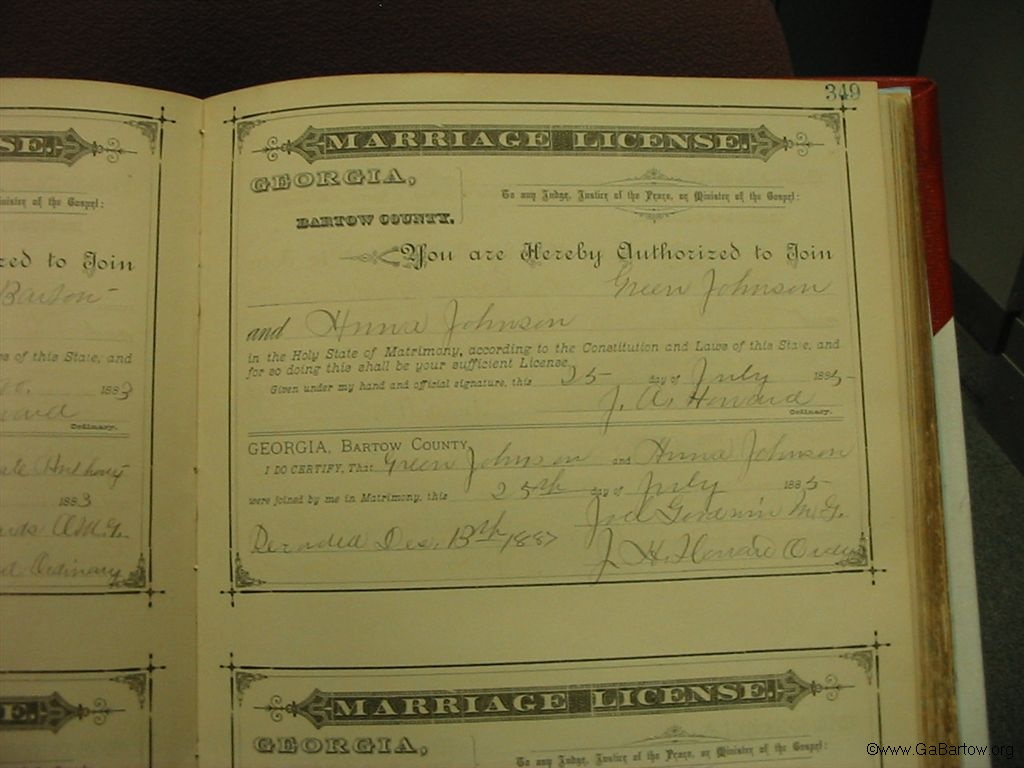 349
SE.
MARRIAGE LICENSE.
GEORGIA,
BARTOW COUNTY.
To any Judge, Justice of the Peace, or Minister of the Gospel:
You are Hereby Authorized to Join
Green Johnson
and Anna Johnson
in the Holy State of Matrimony, according to the Constitution and Laws of this State, and
for so doing this shall be your sufficient License.
Given under my hand and official signature, this 25 day of July 1885
J. A. Howard
Ordinary.
GEORGIA, BARTOW COUNTY,
I DO CERTIFY, That Green Johnson and Anna Johnson
were joined by me in Matrimony, this 25th day of July 1885
Joel Goodwin M.G.
Dec. 13th 1887
Howard
inister of the Gospel:
zed to Join
Barton
ws of this State, and
1883
ward
Ordinary.
Anthony
1883
Ordinary
E.
MARRIAGE LICENSE.
GEORGIA,
To any Judge, Justice of the Peace, or Minister of the Gospel:
©www.GaBartow.org